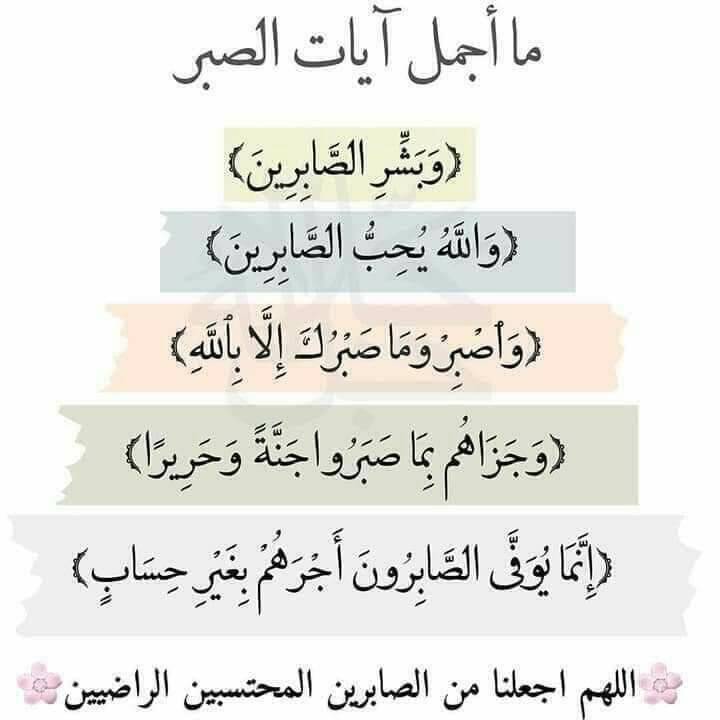 ما أجمل آيات الصبر
﴿وَبَشِّرِ الصَّابِرِينَ﴾
﴿وَاللَّهُ يُحِبُّ الصَّابِرِينَ﴾
﴿وَٱصْبِرْ وَمَا صَبْرُكَ إِلَّا بِٱللَّهِ﴾
﴿وَجَزَاهُم بِمَا صَبَرُوا جَنَّةً وَحَرِيرًا﴾
﴿إِنَّمَا يُوَفَّى الصَّابِرُونَ أَجْرَهُمْ بِغَيْرِ حِسَابٍ﴾
🌸اللهم اجعلنا من الصابرين المحتسبين الراضيين🌸